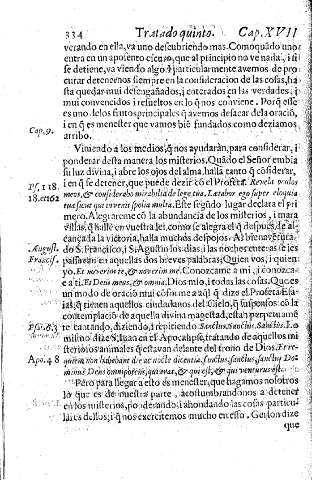 334 Tratado quinto. Cap. XVII
verando en ella, va uno descubriendo mas. Como quãdo uno
entra en un aposento escuro, que al principo no ve nada, i si
se detiene, va viendo algo i particularmente avemos de pro
curar detenernos siempre en la consideracion de las cosas, has
ta quedar mui desengañados, i enterados en las verdades, i
mui convencidos i resueltos en lo q̃ nos conviene. Porq̃ esse
es uno de los frutos principales q̃ avemos de sacar de la oraciõ,
Cap. 9. i en q̃ es menester que vamos biẽ fundados como deziamos
arriba.
Viniendo a los medios, q̃ nos ayudarán, para considerar, i
ponderar desta manera los misterios. Quãdo el Señor embia
su luz divina, i abre los ojos del alma, halla tanto q̃ cõsiderar,
Ps. 118. i en q̃ se detener, que puede dezir cõ el Profeta. Revela oculos
18. et 162 meos, & considerabo mirabilia de lege tua. Lætabor ego super eloquia
tua sicut qui invenit spolia multa. Este segũdo lugar declara el pri
mero. Alegrareme cõ la abundancia de los misterios, i mara
villas, q̃ hallè en vuestra lei, como se alegra el q̃ despues de al-
cançada la victoria, halla muchos despojos. A
August. S. Francisco, i S. Agustin los dias i las noches enteras se les
Francis. passavan en aquellas dos breves palabras; Quien vos, i quien
yo. Et noverim te, & noverim me. Conozcame a mi, i conozca
a ti. Et Deus meus, & omnia, Dios mio, i todas las cosas. Que es
un modo de oració mui cõforme a aql̃ q̃ dize el Profeta Esa-
ias, q̃ tienen aquellos cortesanos del Cielo, q̃ suspensos cõ la
contemplaciõ de aquella divina magestad, están perpetuamẽ
Isai. 6. 3. te cantando, diziendo, i repitiendo Sanctus, Sanctus, Sanctus. Lo
mismo dize S. Iuan en el Apocalipse, tratando de aquellos mi
Apo. 4. 8 steriosos animales q̃ estavan delante del trono de Dios. Et re-
quiem non habebant die ac nocte dicentia, sanctus, sanctus, sanctus Do-
minus Deus omnipotens, qui erat, & qui est, & qui venturus est.
Pero para llegar a esto es menester, que hagamos nosotros
lo que es de nuestra parte, acostumbrandonos a detener
en los misterios, ponderando, i ahondando las cosas particu-
lares dellos; i q̃ nos exercitemos mucho en esso. Gerson dize
que